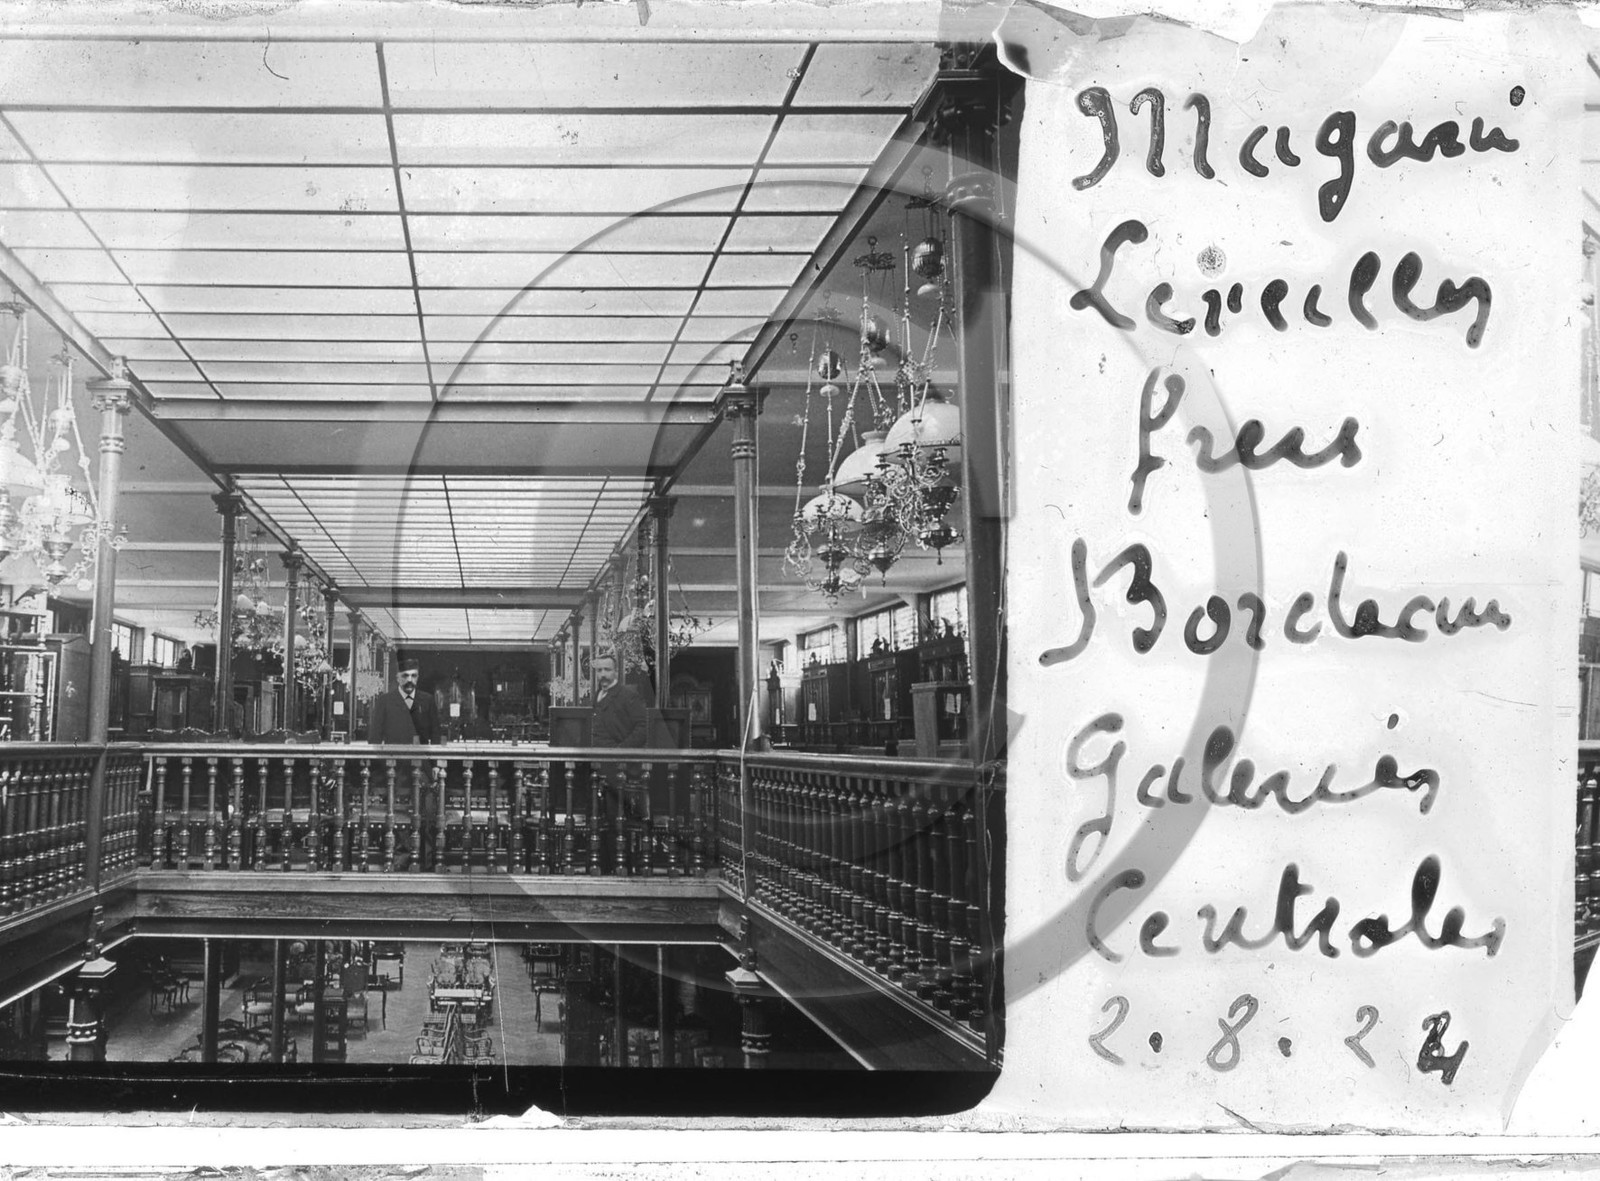 Magasin
Léveilley
frères
Bordeaux
Galeries
Centrales
2.8.24